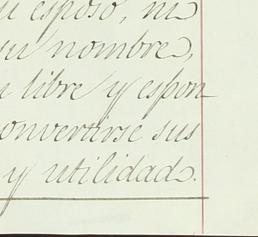 su esposo, ni
su nombre,
libre y espon-
convertirse sus
y utilidad.